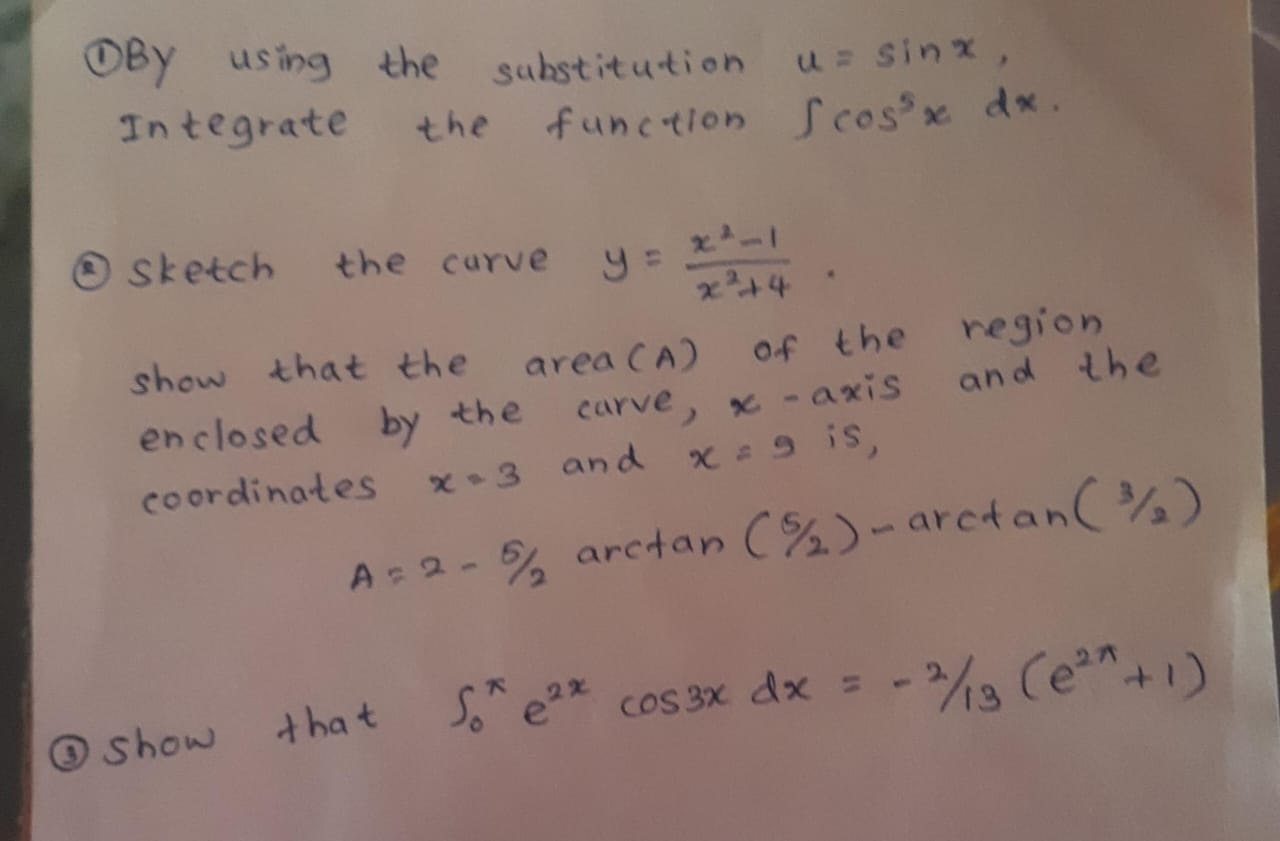 ① By using the substitution u = sin x,
Integrate the function ∫cos⁵x dx.
② Sketch the curve y = (x²-1)/(x²+4).
show that the area (A) of the region
enclosed by the curve, x-axis and the
coordinates x=3 and x=9 is,
A = 2 - 5/2 arctan (5/2) - arctan (3/2)
③ Show that ∫₀^π e^2x cos 3x dx = -2/13 (e^2π + 1)